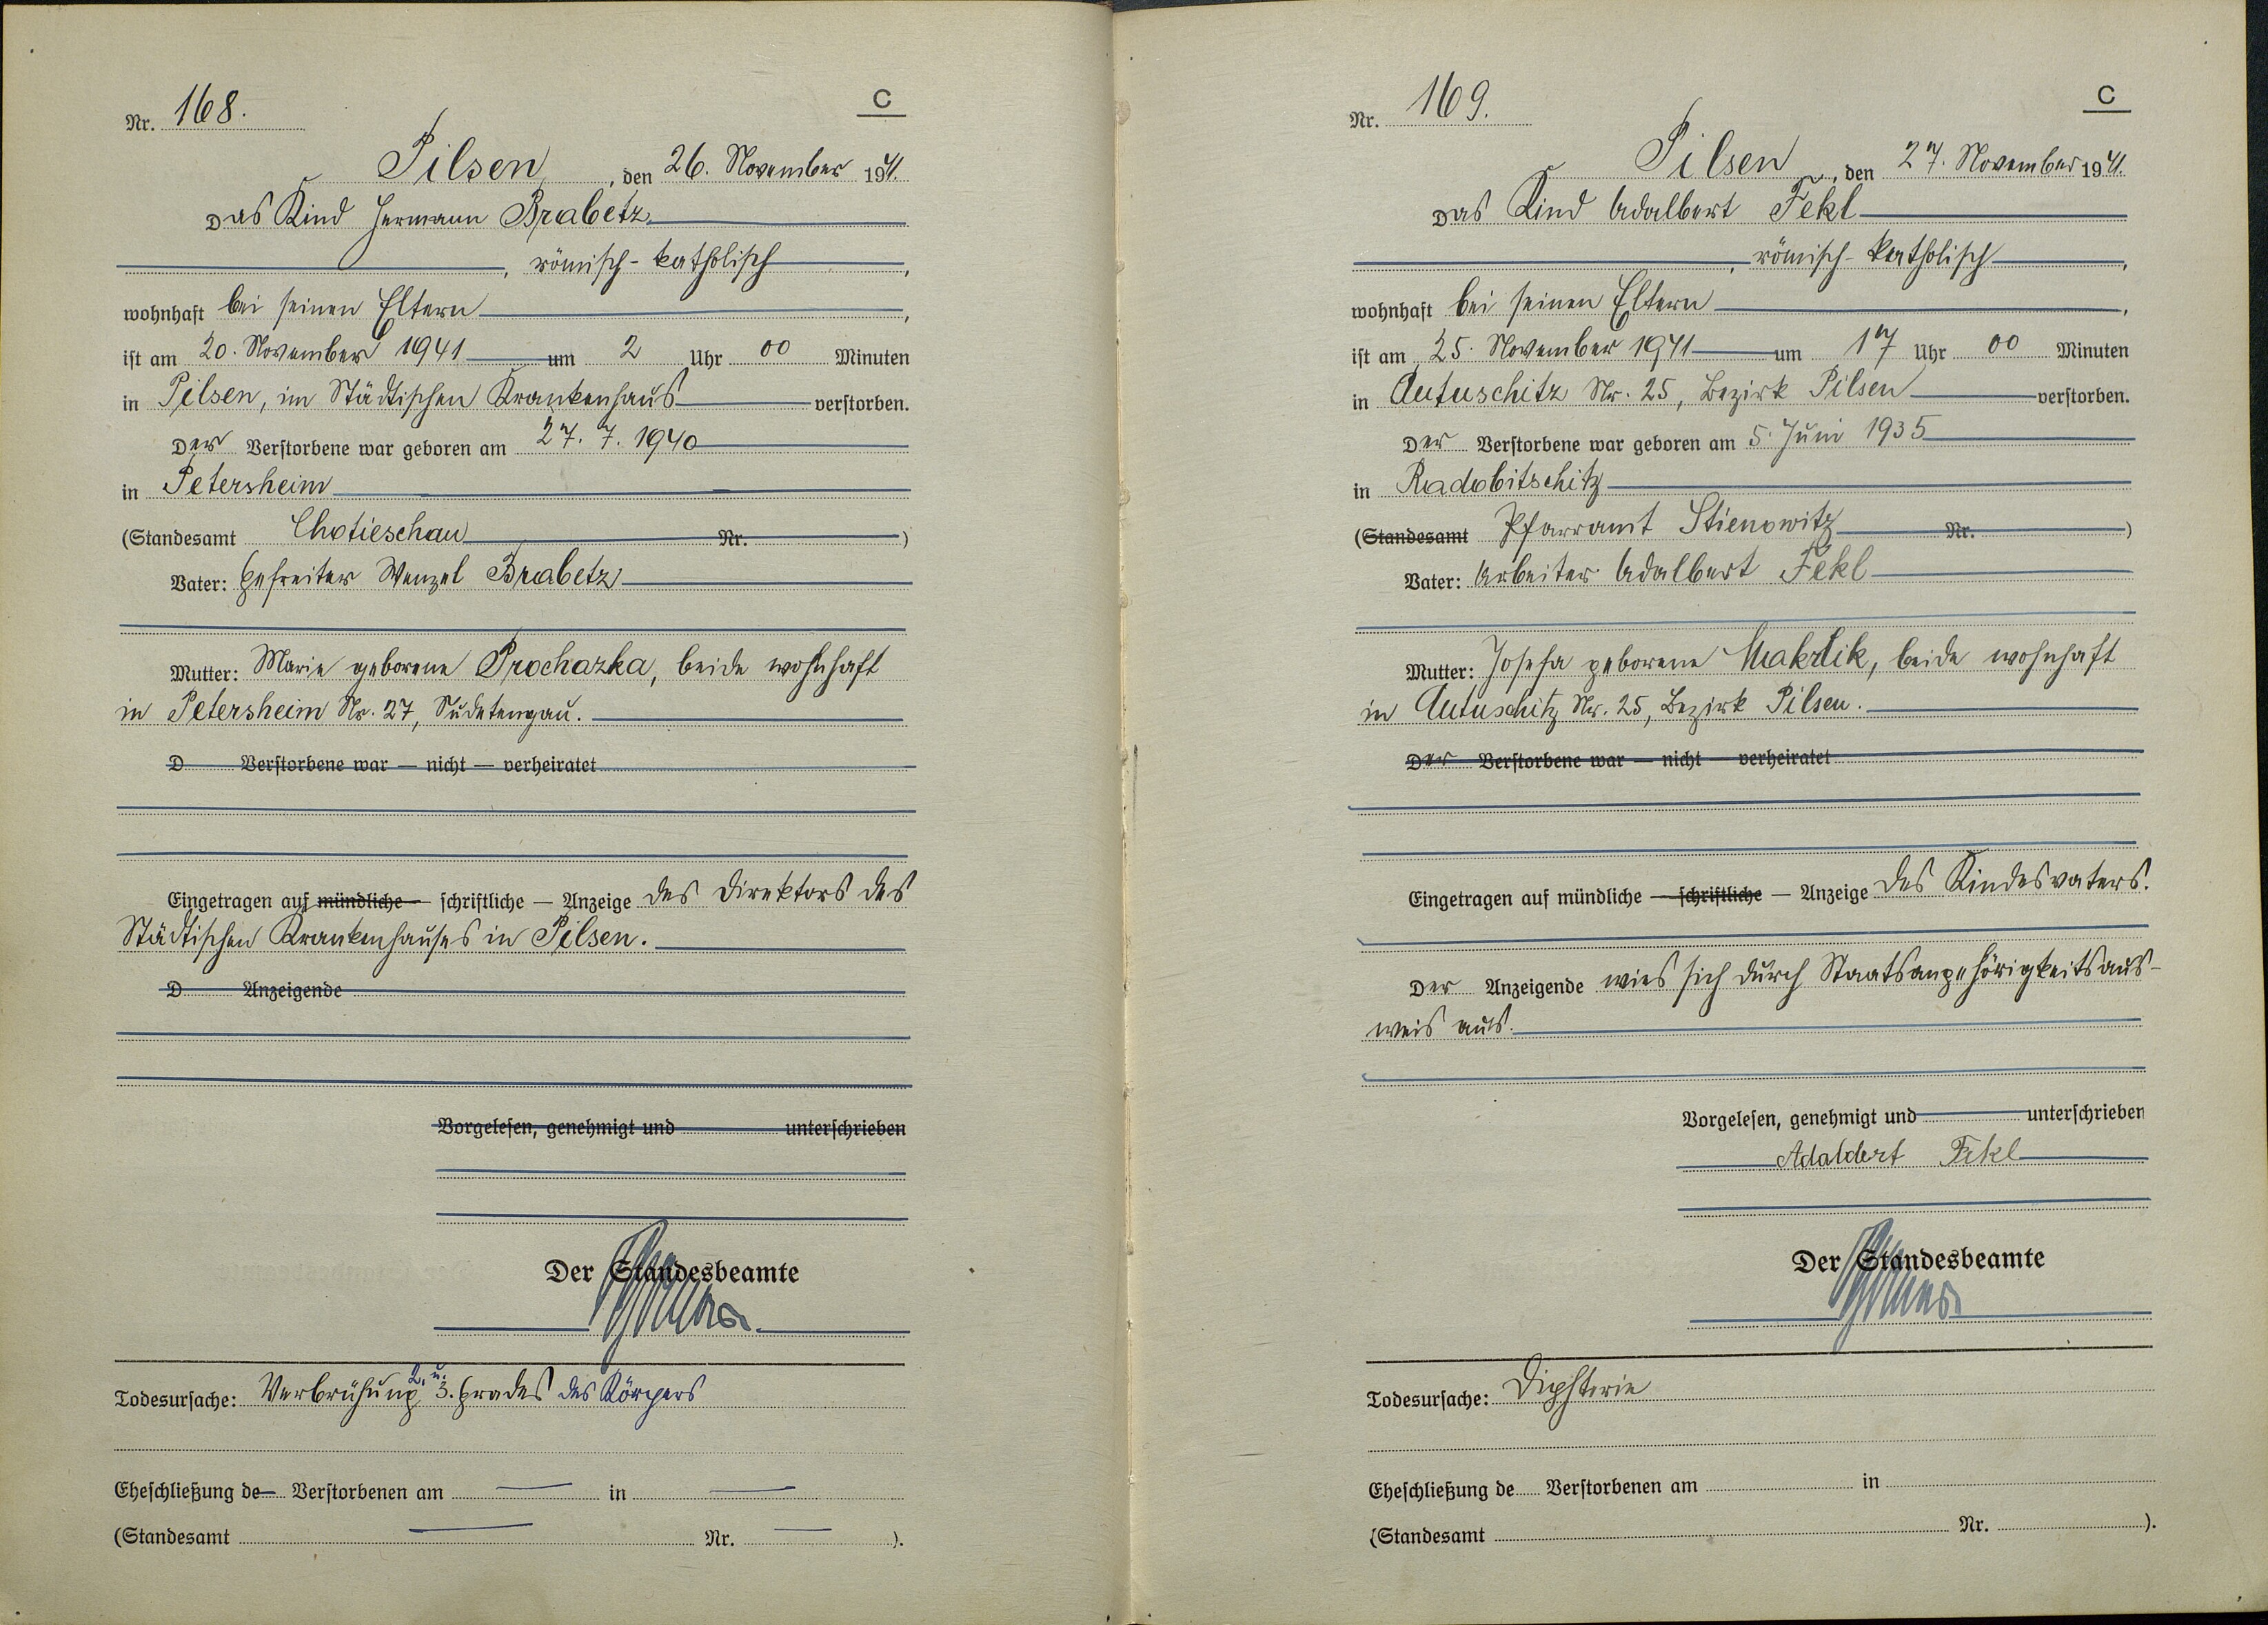 C
Nr. 168.
Pilsen, den 26. November 1941.
Das Kind Hermann Brabetz
, römisch-katholisch ,
wohnhaft bei seinen Eltern ,
ist am 20. November 1941 um 2 Uhr 00 Minuten
in Pilsen, im Städtischen Krankenhaus verstorben.
Der Verstorbene war geboren am 27. 7. 1940
in Petersheim
(Standesamt Chotieschau Nr. )
Vater: Gefreiter Wenzel Brabetz
Mutter: Marie geborene Prochazka, beide wohnhaft
in Petersheim Nr. 27, Sudetengau.
D Verstorbene war — nicht — verheiratet
Eingetragen auf mündliche — schriftliche — Anzeige des Direktors des
Städtischen Krankenhauses in Pilsen.
D Anzeigende
Vorgelesen, genehmigt und unterschrieben
Der Standesbeamte
Todesursache: Verbrühung 2. u. 3. Grades des Körpers
Eheschließung de Verstorbenen am — in —
(Standesamt — Nr. — ).
C
Nr. 169.
Pilsen, den 27. November 1941.
Das Kind Adalbert Fekl
, römisch-katholisch ,
wohnhaft bei seinen Eltern ,
ist am 25. November 1941 um 17 Uhr 00 Minuten
in Autuschitz Nr. 25, Bezirk Pilsen verstorben.
Der Verstorbene war geboren am 5. Juni 1935
in Radobitschitz
(Standesamt Pfarramt Stienowitz Nr. )
Vater: Arbeiter Adalbert Fekl
Mutter: Josefa geborene Makrlik, beide wohnhaft
in Autuschitz Nr. 25, Bezirk Pilsen.
Der Verstorbene war — nicht — verheiratet
Eingetragen auf mündliche — schriftliche — Anzeige des Kindesvaters.
Der Anzeigende wies sich durch Staatsangehörigkeitsaus-
weis aus.
Vorgelesen, genehmigt und unterschrieben
Adalbert Fekl
Der Standesbeamte
Todesursache: Diphterie
Eheschließung de Verstorbenen am in
(Standesamt Nr. ).